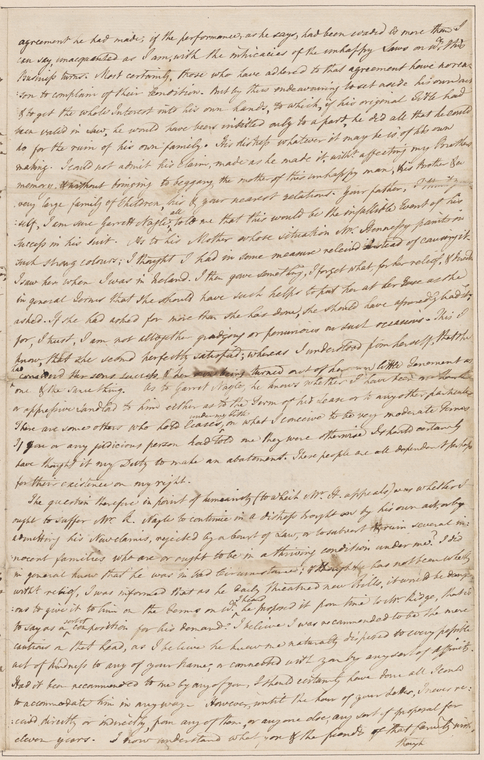 agreement he had made; if the performance, as he says, had been evaded is more than I
can say, unacquainted as I am, with the intricacies of the unhappy Laws on wch. this
business turns. Most certainly, those who have adhered to that agreement have no rea-
son to complain of their Condition. But by thus endeavouring to set aside his own act
& to get the whole Interest into his own hands, to which, if his original Title had
been valid in Law, he would have been intitled only to a part, he did all that he could
do for the ruin of his own family. His distress whatever it may be is of his own
making. I could not admit his Claim, made as he made it, without affecting my Brothers
memory, & without bringing to beggary, the mother of this unhappy man, his Brother & a
very large family of Children, his & your nearest relations. Your father,
self, I am sure Garrett Nagle, all told me that this would be the infallible Event of his
Success in his Suit. As to his Mother whose situation Mr. Hennessy paints in
such strong colours; I thought I had in some measure relievd instead of causing it.
I saw her when I was in Ireland. I then gave something, I forget what for her relief, & I
in general Terms that she should have such helps to put her at her Ease as she
asked. If she had asked for more than she has done, she should have already had it;
for, I trust, I am not altogether grudging or penurious on such occasions. This I
know, that she seemd perfectly satisfied; whereas I understood from herself, that she
considerd her sons success & her being turned out of her own little Tenement as
one & the same thing. As to Garret Nagle, he knows whether I have been an
or oppressive Landlord to him either as to the Term of his Lease or to any other particular
There are some others who hold Leases, under my title on what I conceive to be very moderate Terms
If you or any judicious person had told me they were otherwise I should certainly
have thought it my Duty to make an abatement. These people are all dependent perhaps
for their existence on my right.
The question therefore in point of humanity (to which Mr. H. appeals) was whether I
ought to suffer Mr. R. Nagle to continue in a distress brought on by his own act, or by
admitting his New claims, rejected by a Court of Law, or to subvert & ruin several in-
nocent families who are or ought to be in a thriving condition under me. I did
in general know that he was in bad Circumstances; & though he has not been wholly
without relief, I was informed that as he daily threatned new Bills, it would be danger-
ous to give it to him on the terms on wch. he proposed it from time to Mr. Ridge, that is
to say as a sort of composition for his demand. I believe I was recommended to be the more
cautious on that head, as I believe he knew me naturally disposed to every possible
act of kindness to any of your name; or connected with you by any sort of affinity.
Had it been recommended to me by any of you, I should certainly have done all I could
to accommodate him in any way. However, until the hour of your Letter, I never re-
ceived directly or indirectly, from any of them, or any one else, any sort of proposal for
eleven years. I now understand what you & the friends of that family wish,
though